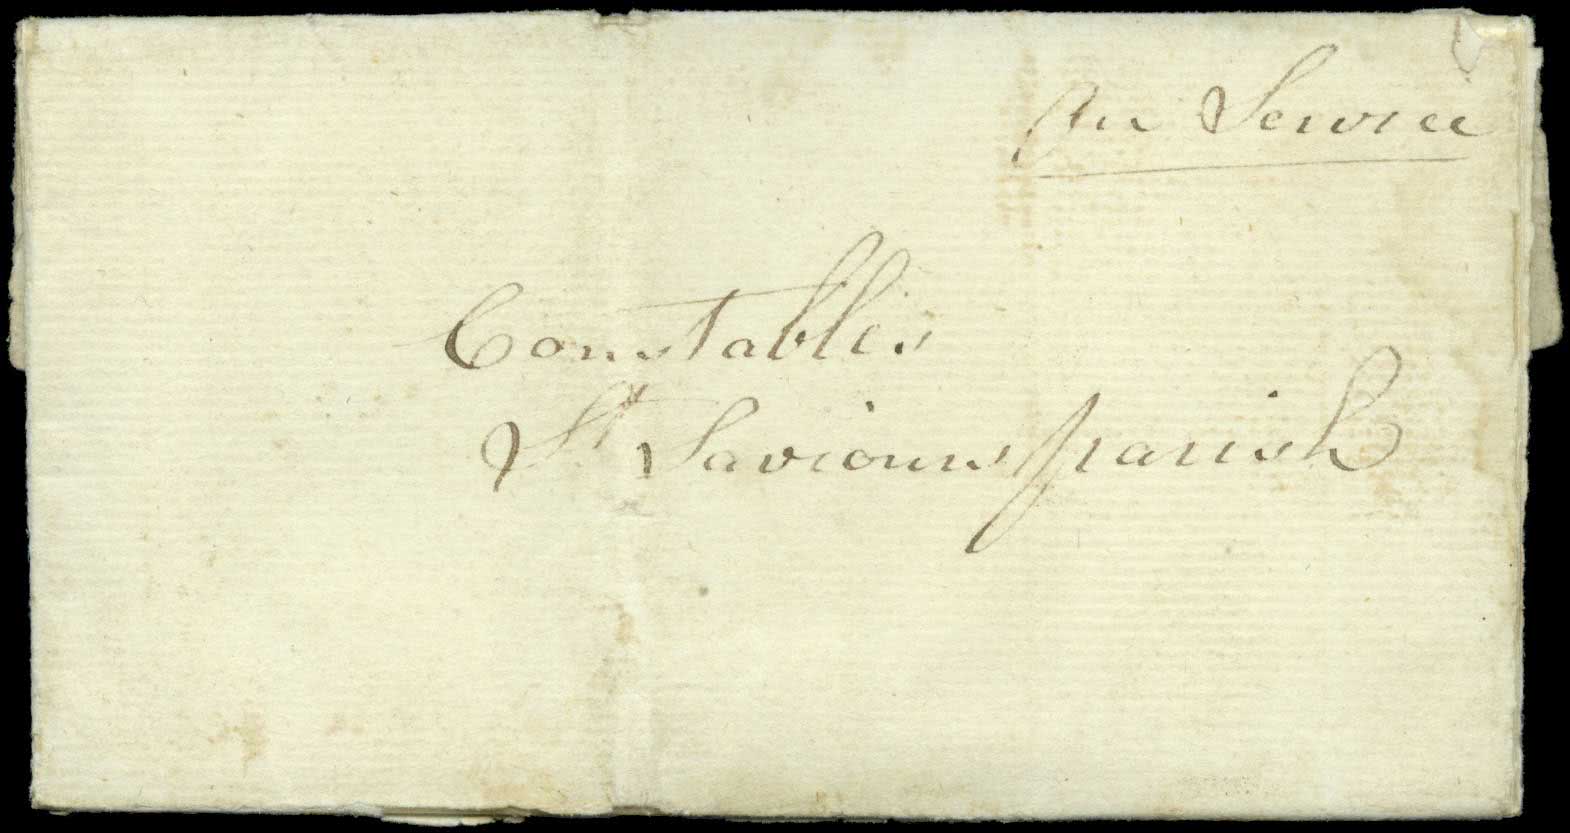 On Service
Constables
St Saviours parish